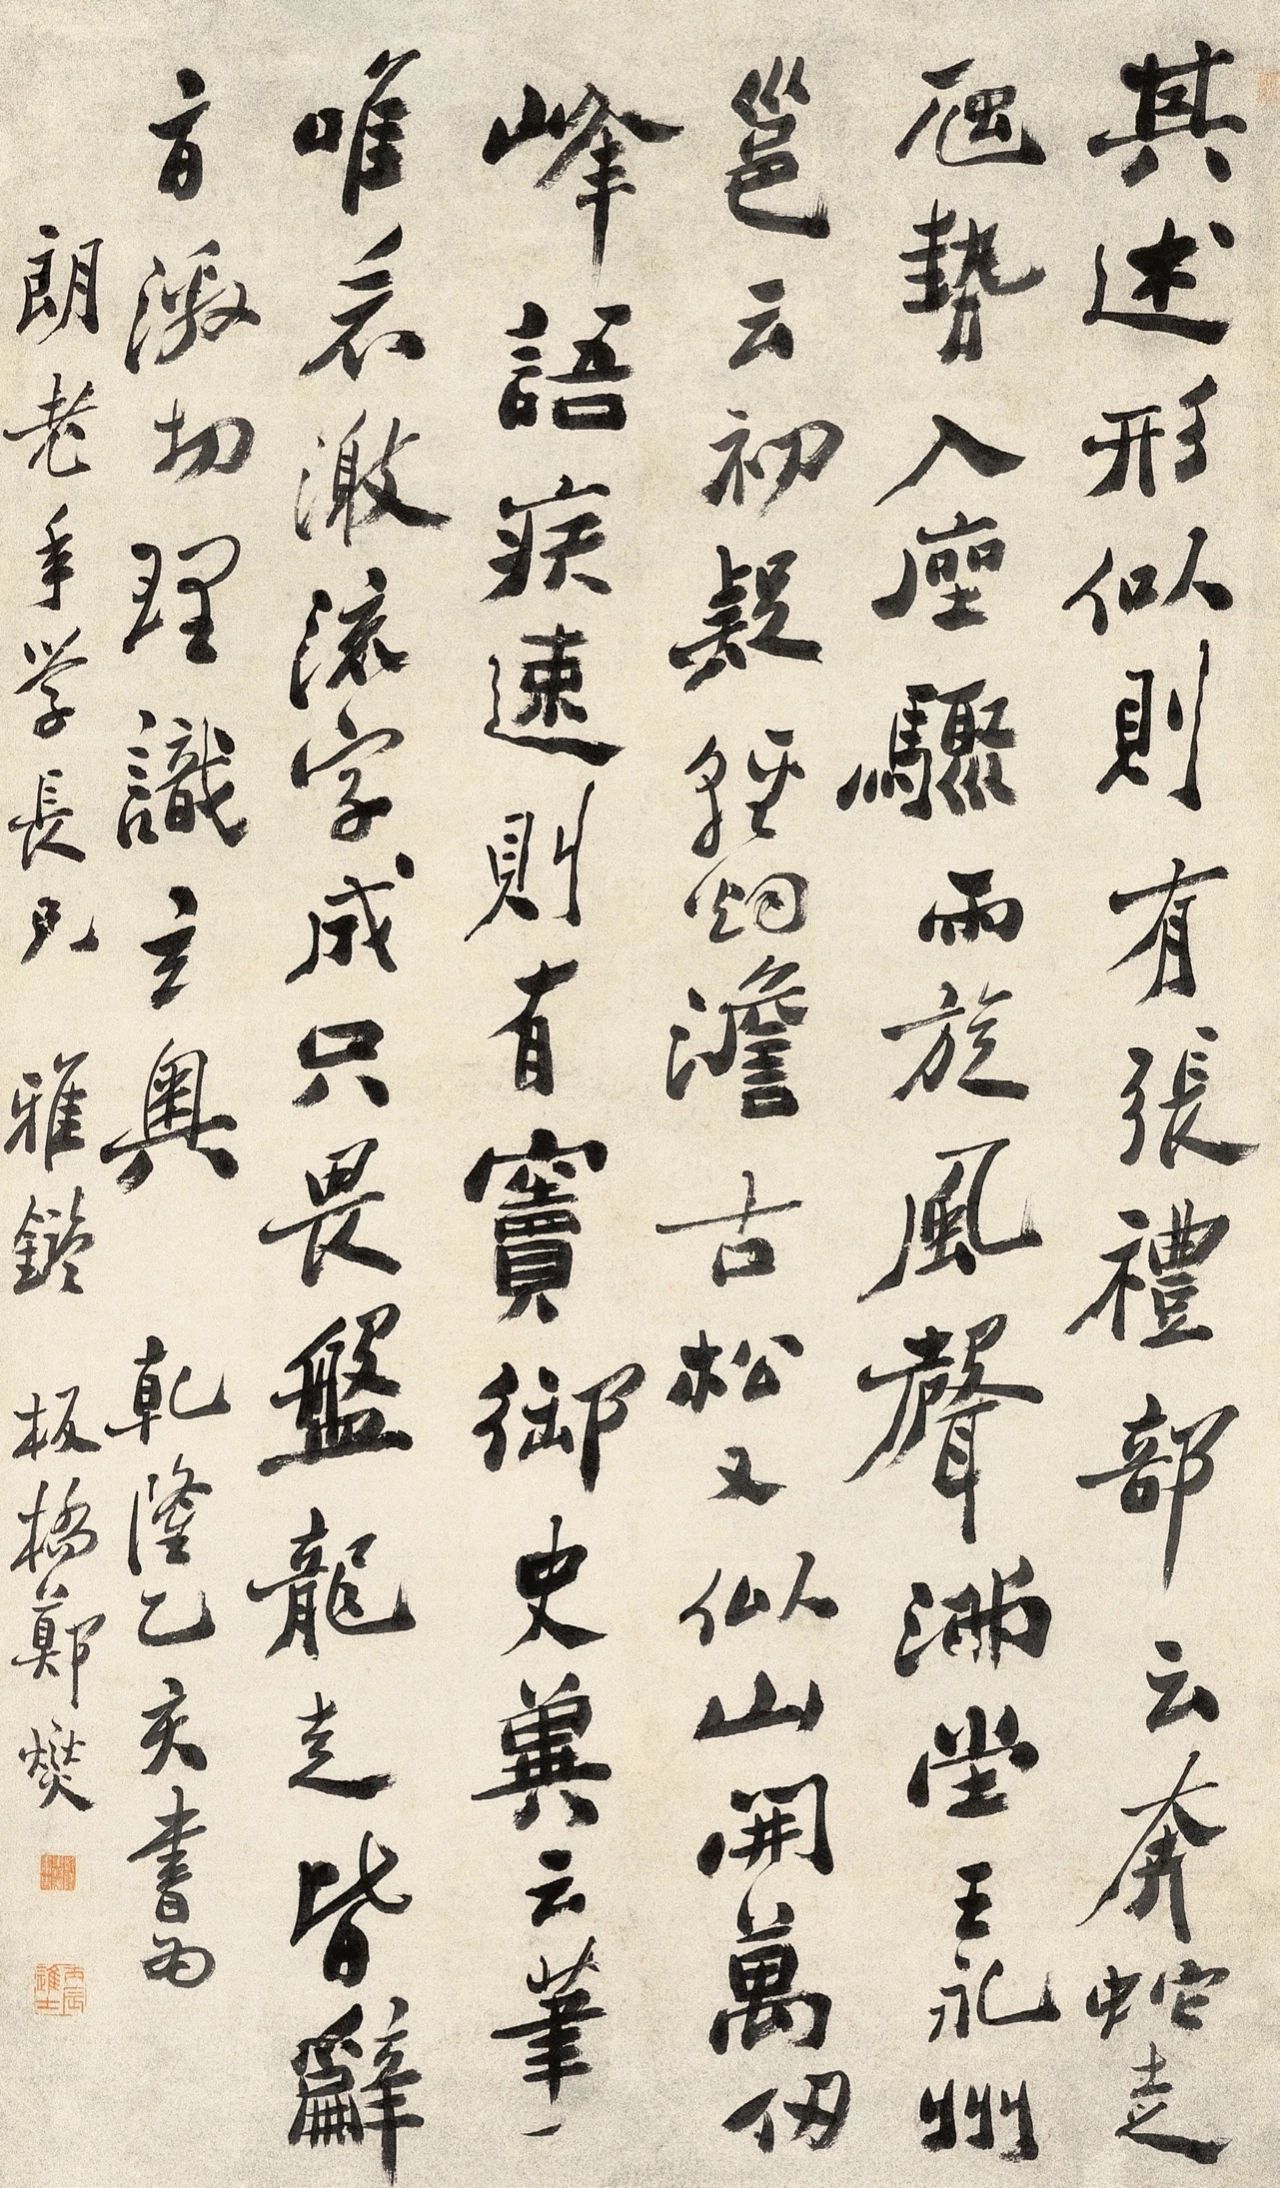 其述形似則有張禮部云奔蛇走
虺勢入座驟雨旋風聲滿堂王永州
邕云初疑輕烟澹古松又似山開萬仞
峰語疾速則有竇御史冀云筆一
唯看激流字成只畏盤龍走皆辭
旨激切理識玄奧 乾隆乙亥書爲
朗老年學長兄 雅鑒 板橋鄭燮
丙辰進士